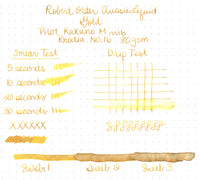 Robert Oster Aussie Liquid
Gold
Pilot Kakuno M nib
Rhodia No. 16 80gsm
Smear Test
Drip Test
5 seconds
10 seconds
20 seconds
30 seconds
XXXXXX
Swab 1
Swab 2
Swab 3